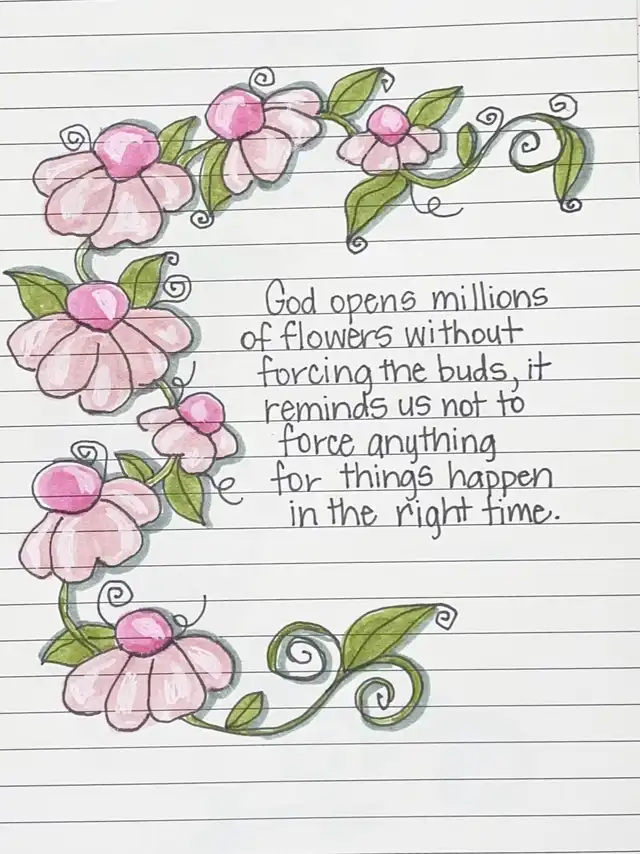 God opens millions
of flowers without
forcing the buds, it
reminds us not to
force anything
for things happen
in the right time.